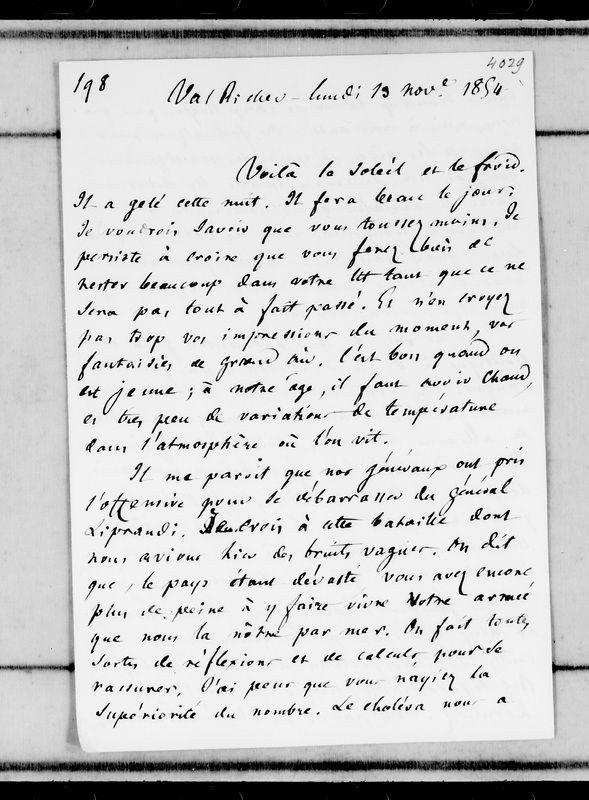 4029
198
Val Richer – lundi 13 nove. 1854
Voilà le soleil et le froid.
Il a gelé cette nuit. Il fera beau le jour.
Je voudrois savoir que vous toussez moins. Je
persiste à croire que vous ferez bien de
rester beaucoup dans votre lit tant que ce ne
sera pas tout à fait passé. Et n'en croyez
pas trop vos impressions du moment, vos
fantaisies de grand air. C'est bon quand on
est jeune ; à notre âge, il faut avoir chaud,
et très peu de variations de température
dans l'atmosphère où l'on vit.
Il me paroit que nos généraux ont pris
l'offensive pour se débarrasser du général
Liprandi. Je crois à cette bataille dont
nous avions hier des bruits vagues. On dit
que, le pays étant dévasté vous avez encore
plus de peine à y faire vivre votre armée
que nous la nôtre par mer. On fait toutes
sortes de réflexions et de calculs pour se
rassurer. J'ai peur que vous n'ayiez la
supériorité du nombre. Le choléra nous a